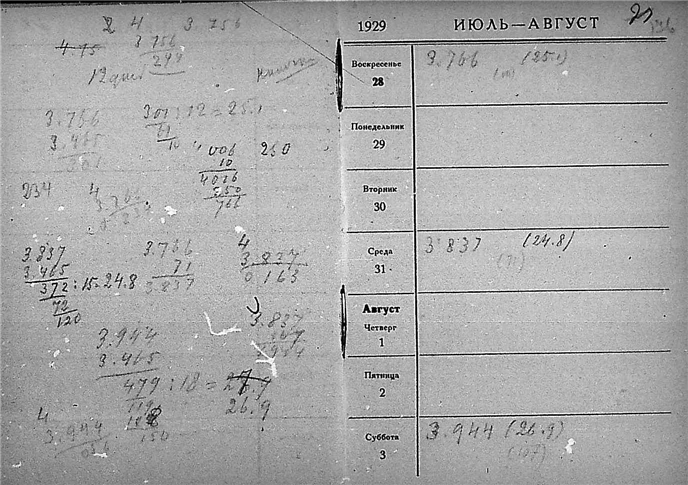 2 4 3.756
4.15 3.756
12 дней 244
3.766 301 : 12 = 25.1
3.465 61
301 10
4.006 260
10
4016
250
766
234 4
3.766
0.234
3.837 3.766 4
3.465 71 3.837
372 : 15 = 24.8 3.837 0.163
72
120
3.837
107
3.944
3.944
3.465
479 : 18 = 26.9
119 26.9
108
110
4
3.944
056
1929 ИЮЛЬ—АВГУСТ
Воскресенье
28 3.766 (25.1)
Понедельник
29
Вторник
30
Среда
31 3.837 (24.8)
(71)
Август
Четверг
1
Пятница
2
Суббота
3 3.944 (26.9)
(107)